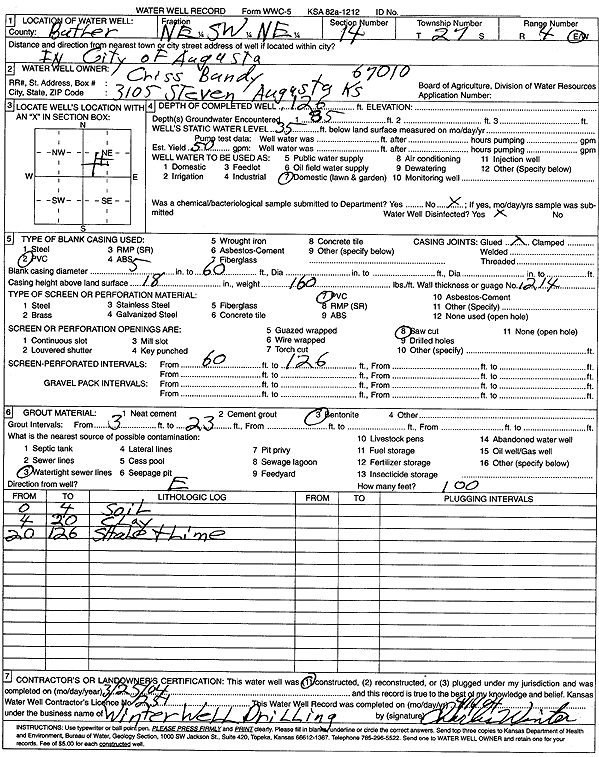 WATER WELL RECORD Form WWC-5 KSA 82a-1212 ID No.
1 LOCATION OF WATER WELL: Fraction Section Number Township Number Range Number
County: Butler NE ¼ SW ¼ NE ¼ 14 T 27 S R 4 E/W
Distance and direction from nearest town or city street address of well if located within city?
IN City of Augusta
2 WATER WELL OWNER: Criss Bandy 67010
RR#, St. Address, Box # : 3105 Steven Augusta Ks Board of Agriculture, Division of Water Resources
City, State, ZIP Code : Application Number:
3 LOCATE WELL'S LOCATION WITH AN "X" IN SECTION BOX:
N
NW NE
W E
SW SE
S
4 DEPTH OF COMPLETED WELL 126 ft. ELEVATION:
Depth(s) Groundwater Encountered 1 85 ft. 2 ft. 3 ft.
WELL'S STATIC WATER LEVEL 35 ft. below land surface measured on mo/day/yr
Pump test data: Well water was ft. after hours pumping gpm
Est. Yield 50 gpm: Well water was ft. after hours pumping gpm
WELL WATER TO BE USED AS: 5 Public water supply 8 Air conditioning 11 Injection well
1 Domestic 3 Feedlot 6 Oil field water supply 9 Dewatering 12 Other (Specify below)
2 Irrigation 4 Industrial 7 Domestic (lawn & garden) 10 Monitoring well
Was a chemical/bacteriological sample submitted to Department? Yes No X; If yes, mo/day/yrs sample was submitted Water Well Disinfected? Yes X No
5 TYPE OF BLANK CASING USED: 5 Wrought iron 8 Concrete tile CASING JOINTS: Glued X Clamped
1 Steel 3 RMP (SR) 6 Asbestos-Cement 9 Other (specify below) Welded
2 PVC 4 ABS 7 Fiberglass Threaded
Blank casing diameter 5 in. to 60 ft., Dia in. to ft., Dia in. to ft.
Casing height above land surface 18 in., weight 160 lbs./ft. Wall thickness or guage No. 1214
TYPE OF SCREEN OR PERFORATION MATERIAL: 7 PVC 10 Asbestos-Cement
1 Steel 3 Stainless Steel 5 Fiberglass 8 RMP (SR) 11 Other (Specify)
2 Brass 4 Galvanized Steel 6 Concrete tile 9 ABS 12 None used (open hole)
SCREEN OR PERFORATION OPENINGS ARE: 5 Guazed wrapped 8 Saw cut 11 None (open hole)
1 Continuous slot 3 Mill slot 6 Wire wrapped 9 Drilled holes
2 Louvered shutter 4 Key punched 7 Torch cut 10 Other (specify) ft.
SCREEN-PERFORATED INTERVALS: From 60 ft. to 126 ft., From ft. to ft.
From ft. to ft., From ft. to ft.
GRAVEL PACK INTERVALS: From ft. to ft., From ft. to ft.
From ft. to ft., From ft. to ft.
6 GROUT MATERIAL: 1 Neat cement 2 Cement grout 3 Bentonite 4 Other
Grout Intervals: From 3 ft. to 23 ft., From ft. to ft., From ft. to ft.
What is the nearest source of possible contamination: 10 Livestock pens 14 Abandoned water well
1 Septic tank 4 Lateral lines 7 Pit privy 11 Fuel storage 15 Oil well/Gas well
2 Sewer lines 5 Cess pool 8 Sewage lagoon 12 Fertilizer storage 16 Other (specify below)
3 Watertight sewer lines 6 Seepage pit 9 Feedyard 13 Insecticide storage
Direction from well? E How many feet? 100
FROM TO LITHOLOGIC LOG FROM TO PLUGGING INTERVALS
0 4 Soil
4 20 Clay
20 126 Shale & Lime
7 CONTRACTOR'S OR LANDOWNER'S CERTIFICATION: This water well was (1) constructed, (2) reconstructed, or (3) plugged under my jurisdiction and was
completed on (mo/day/year) 3/25/04 and this record is true to the best of my knowledge and belief. Kansas
Water Well Contractor's Licence No. 251 This Water Well Record was completed on (mo/day/yr)
under the business name of Winter Well Drilling by (signature) Charles Winter
INSTRUCTIONS: Use typewriter or ball point pen. PLEASE PRESS FIRMLY and PRINT clearly. Please fill in blanks, underline or circle the correct answers. Send top three copies to Kansas Department of Health
and Environment, Bureau of Water, Geology Section, 1000 SW Jackson St., Suite 420, Topeka, Kansas 66612-1367. Telephone 785-296-5522. Send one to WATER WELL OWNER and retain one for your
records. Fee of $5.00 for each constructed well.